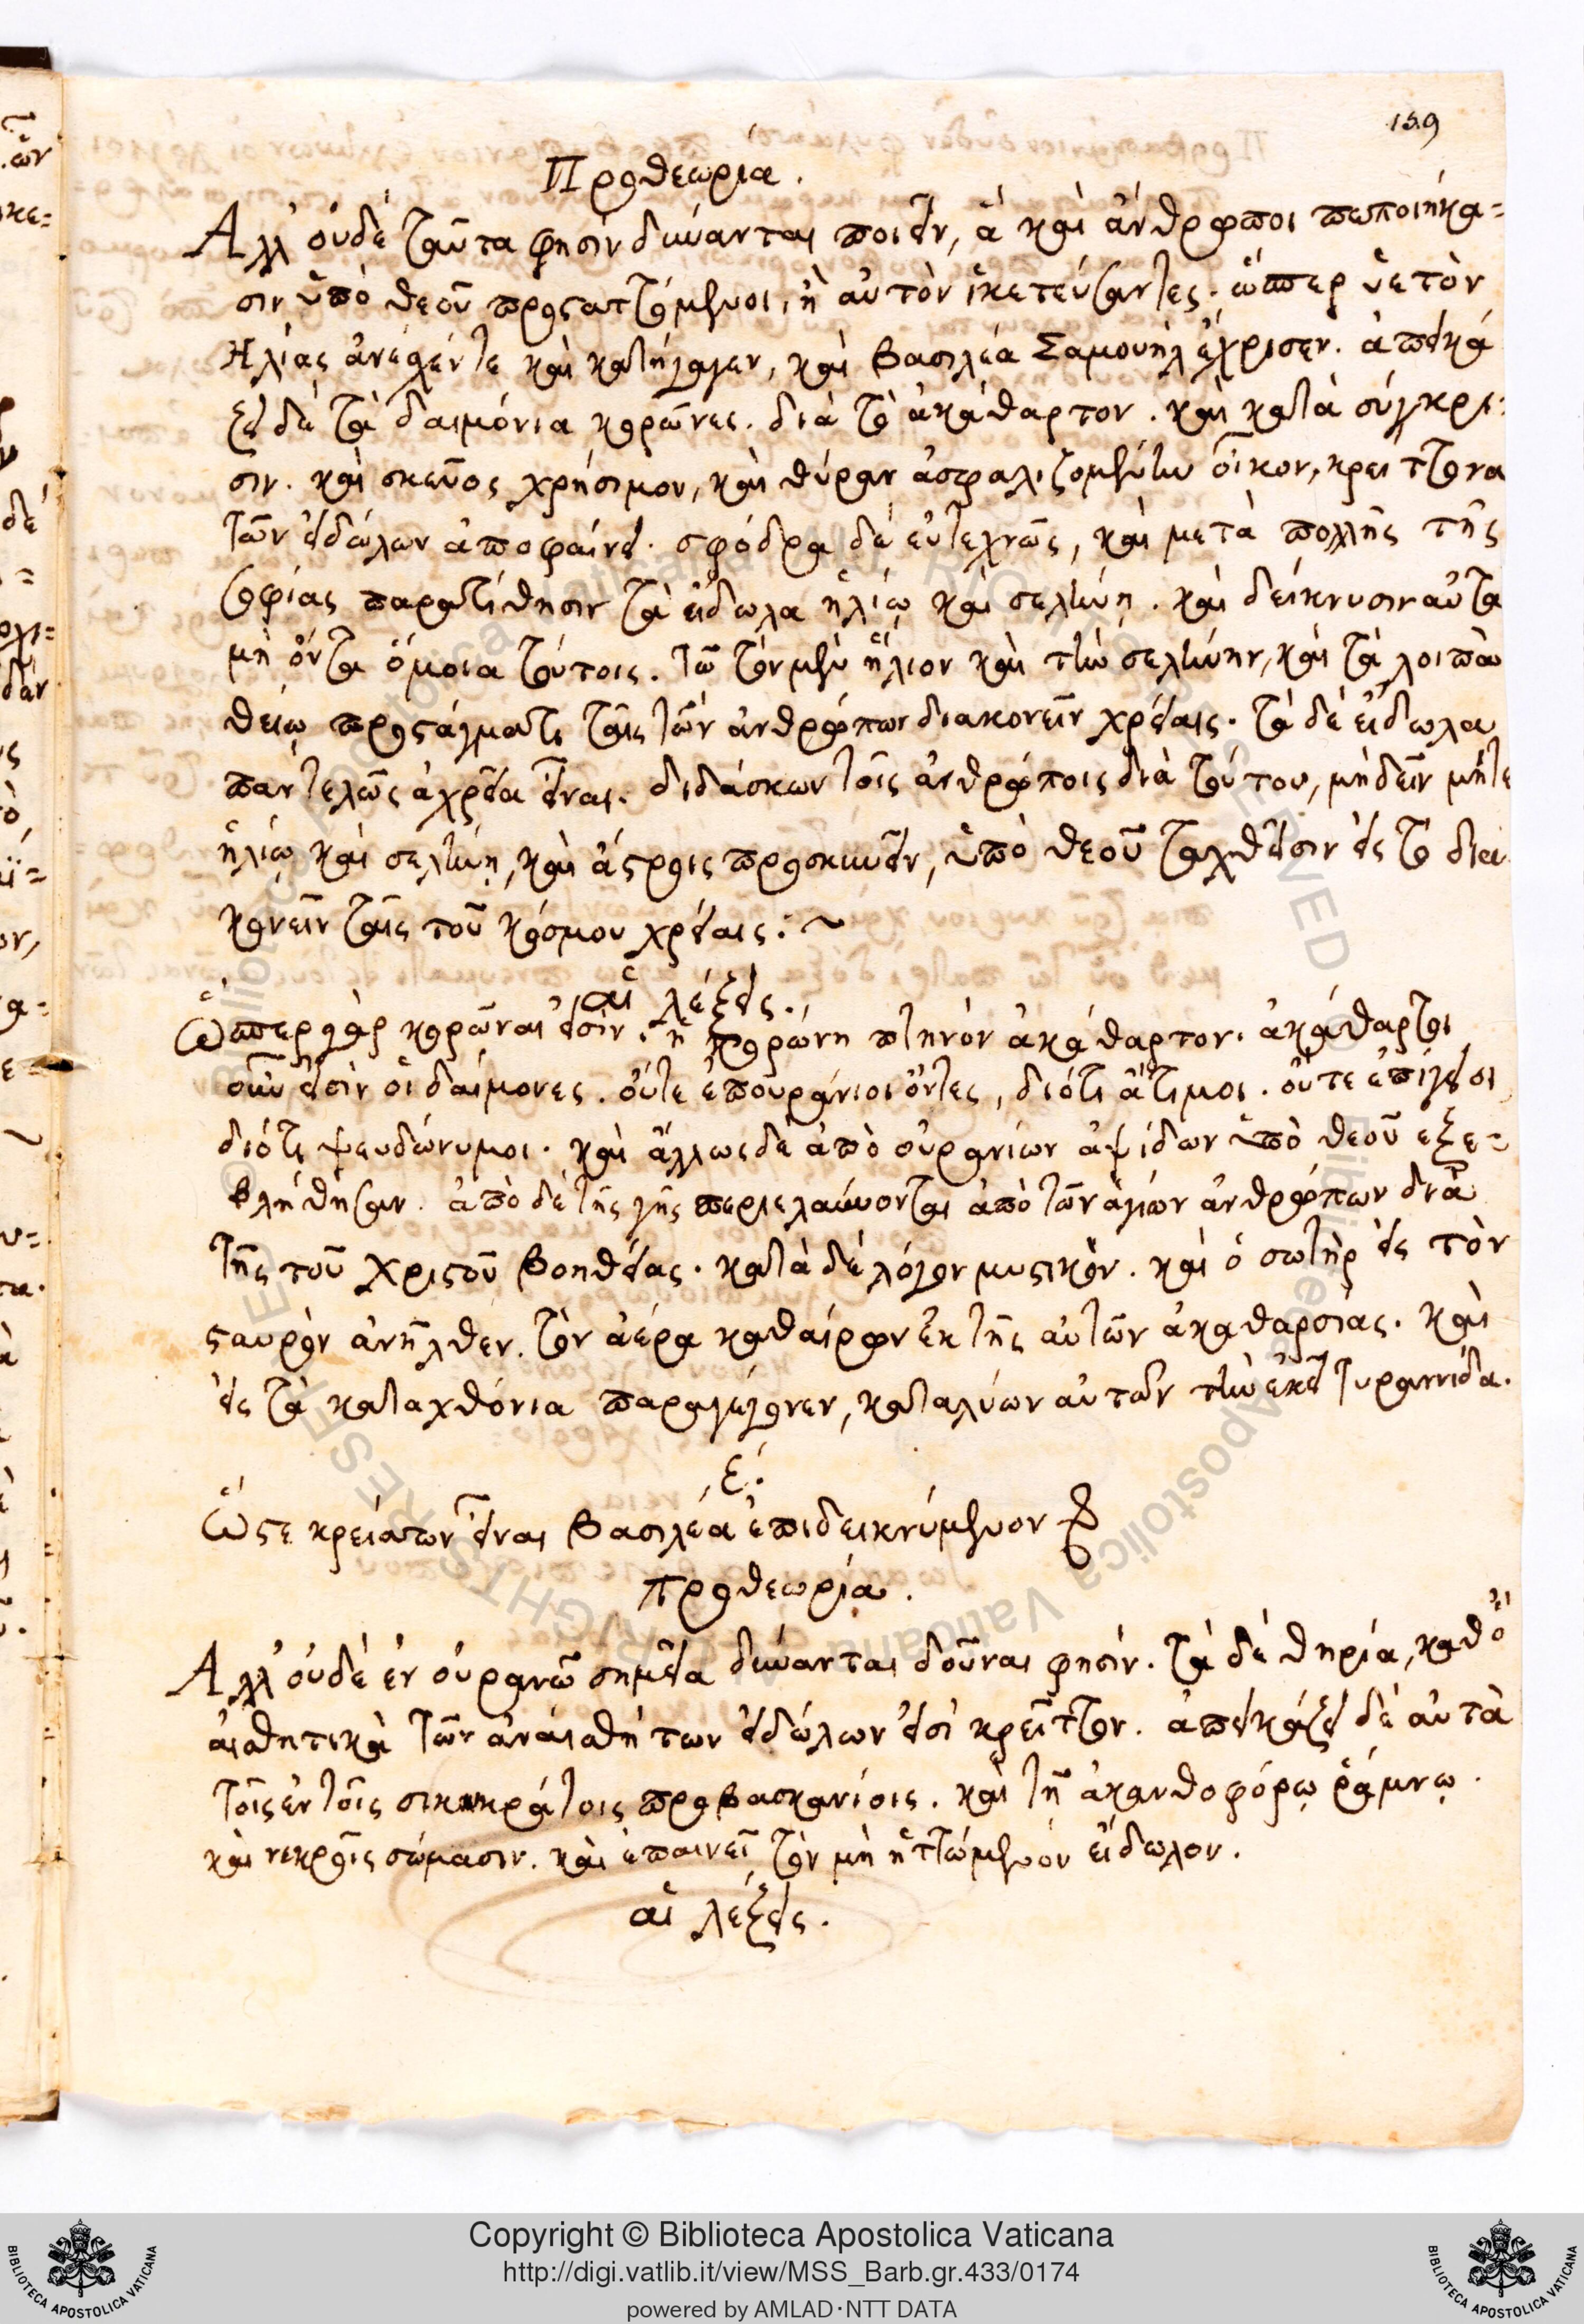 159
Προθεωρία.
Ἀλλ' οὐδὲ ταῦτα φησὶν δύνανται ποιεῖν, ἃ καὶ ἄνθρωποι πεποιήκα=
σιν ὑπὸ θεοῦ προσταττόμενοι, ἢ αὐτὸν ἱκετεύσαντες. ὥσπερ ὑετὸν
Ἠλίας ἀνέσχέν τε καὶ κατήγαγεν, καὶ βασιλέα Σαμουὴλ ἔχρισεν. ἀπεικά
ζει δὲ τὰ δαιμόνια κορώναις. διὰ τὸ ἀκάθαρτον. καὶ κατὰ σύγκρι=
σιν. καὶ σκεῦος χρήσιμον, καὶ θύραν ἀσφαλιζομένην οἶκον, κρείττονα
τῶν εἰδώλων ἀποφαίνει. σφόδρα δὲ εὐτέχνως, καὶ μετὰ πολλῆς τῆς
σοφίας παρατίθησιν τὰ εἴδωλα ἡλίῳ καὶ σελήνῃ. καὶ δείκνυσιν αὐτὰ
μὴ ὄντα ὅμοια τούτοις. τῶ τὸν μὲν ἥλιον καὶ τὴν σελήνην, καὶ τὰ λοιπὰ
θείῳ προστάγματι ταῖς τῶν ἀνθρώπων διακονεῖν χρείαις. τὰ δὲ εἴδωλα
παντελῶς ἀχρεῖα εἶναι. διδάσκων τοῖς ἀνθρώποις διὰ τούτου, μὴ δεῖν μήτε
ἡλίῳ καὶ σελήνῃ, καὶ ἄστροις προσκυνεῖν, ὑπὸ θεοῦ ταχθεῖσιν εἰς τὸ δια
κονεῖν ταῖς τοῦ κόσμου χρείαις: ~
αἱ λέξεις.
Ὥσπερ γὰρ κορῶναι εἰσίν. ἡ κορώνη πτηνὸν ἀκάθαρτον. ἀκάθαρτοι
οὖν εἰσὶν οἱ δαίμονες. οὔτε ἐπουράνιοι ὄντες, διότι ἄτιμοι. οὔτε ἐπίγειοι
διότι ψευδώνυμοι. καὶ ἄλλως δὲ ἀπὸ οὐρανίων ἁψίδων ὑπὸ θεοῦ ἐξε=
βλήθησαν. ἀπὸ δὲ τῆς γῆς περιελαύνονται ἀπὸ τῶν ἁγίων ἀνθρώπων διὰ
τῆς τοῦ Χριστοῦ βοηθείας. κατὰ δὲ λόγον μυστικὸν. καὶ ὁ σωτὴρ εἰς τὸν
σταυρὸν ἀνῆλθεν. τὸν ἀέρα καθαίρων ἐκ τῆς αὐτῶν ἀκαθαρσίας. καὶ
εἰς τὰ καταχθόνια παραγέγονεν, καταλύων αὐτῶν τὴν ἐκεῖ τυραννίδα.
ε΄.
Ὥστε κρείττων εἶναι βασιλέα ἐπιδεικνύμενον
προθεωρία.
Ἀλλ' οὐδὲ ἐν οὐρανῶ σημεῖα δύνανται δοῦναι φησίν. τὰ δὲ θηρία, καθ' ὃ
αἰσθητικὰ τῶν ἀναισθήτων εἰδώλων εἰσὶ κρεῖττον. ἀπεικάζει δὲ αὐτὰ
τοῖς ἐν τοῖς σικυηράτοις προβασκανίοις. καὶ τῇ ἀκανθοφόρῳ ῥάμνῳ.
καὶ νεκροῖς σώμασιν. καὶ ἐπαινεῖ τὸν μὴ ἡττώμενον εἴδωλον.
αἱ λέξεις.
Copyright © Biblioteca Apostolica Vaticana
http://digi.vatlib.it/view/MSS_Barb.gr.433/0174
powered by AMLAD·NTT DATA
BIBLIOTECA APOSTOLICA VATICANA
BIBLIOTECA APOSTOLICA VATICANA